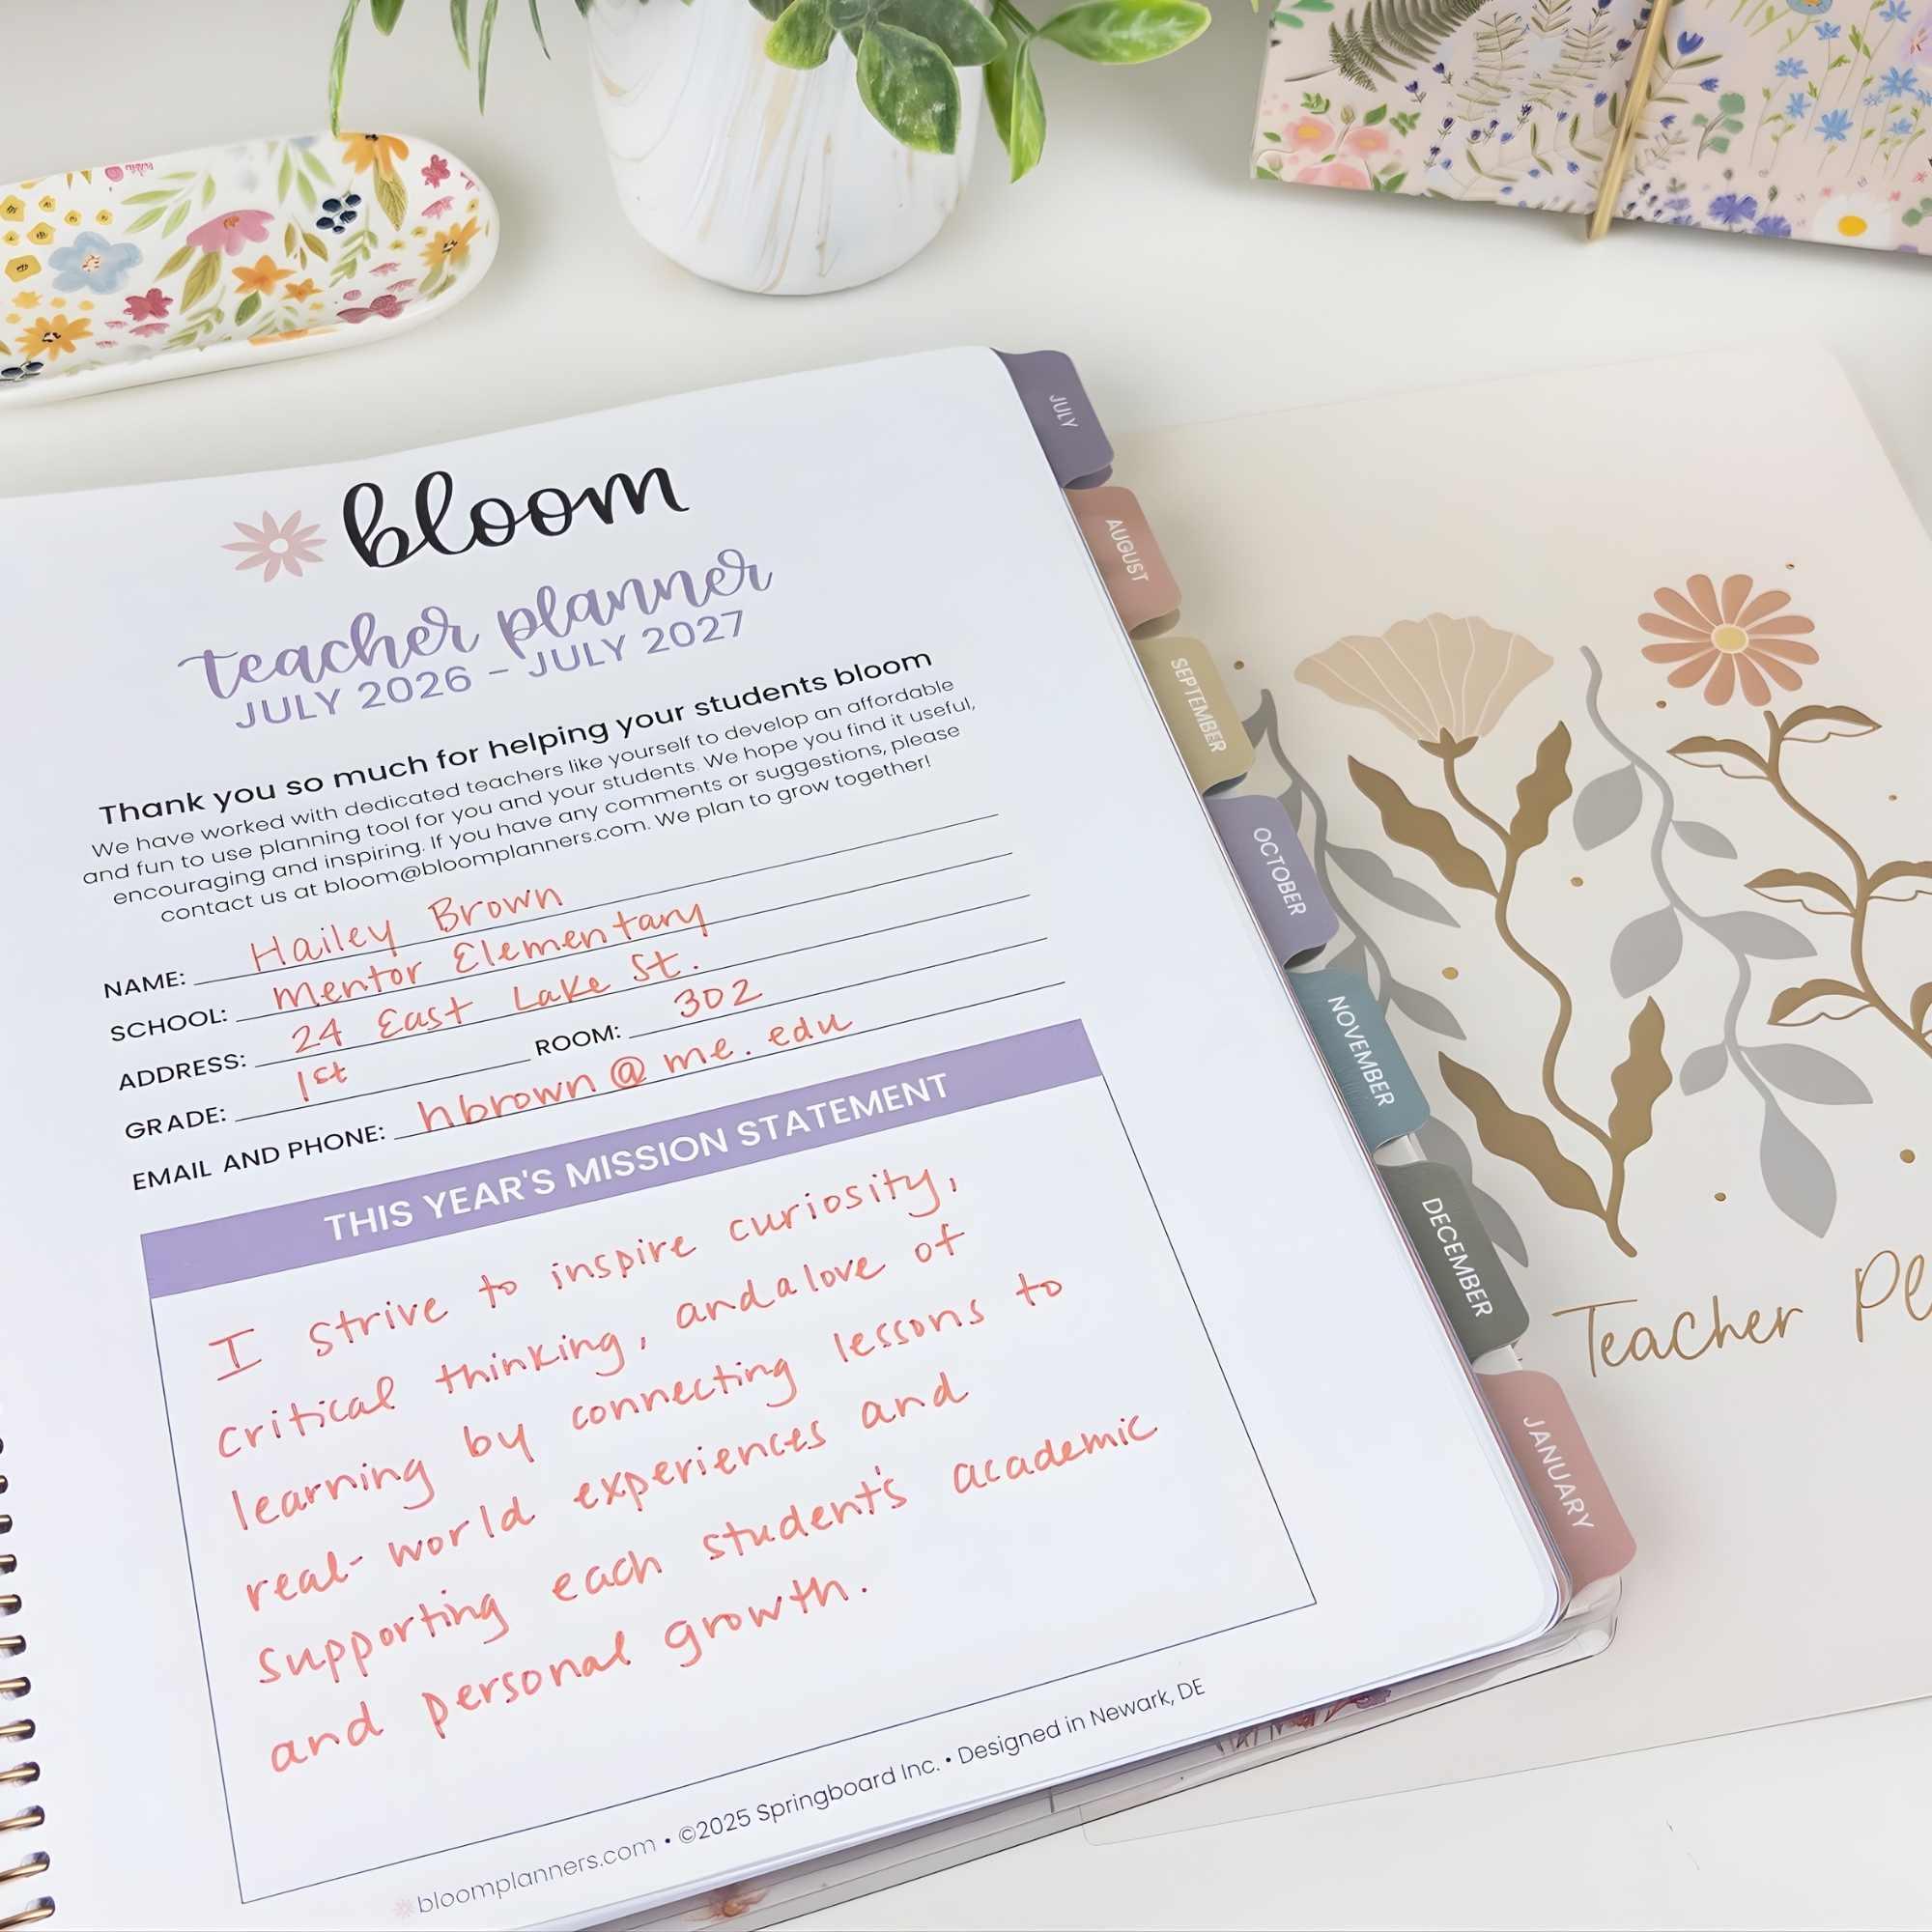 bloom
teacher planner
JULY 2026 - JULY 2027
Thank you so much for helping your students bloom
We have worked with dedicated teachers like yourself to develop an affordable
and fun to use planning tool for you and your students. We hope you find it useful,
encouraging and inspiring. If you have any comments or suggestions, please
contact us at bloom@bloomplanners.com. We plan to grow together!
NAME: Hailey Brown
SCHOOL: Mentor Elementary
ADDRESS: 24 East Lake St.
GRADE: 1st ROOM: 302
EMAIL AND PHONE: hbrown@me.edu
THIS YEAR'S MISSION STATEMENT
I strive to inspire curiosity,
critical thinking, and a love of
learning by connecting lessons to
real-world experiences and
supporting each student's academic
and personal growth.
bloomplanners.com • ©2025 Springboard Inc. • Designed in Newark, DE
JULY
AUGUST
SEPTEMBER
OCTOBER
NOVEMBER
DECEMBER
JANUARY
Teacher Pl